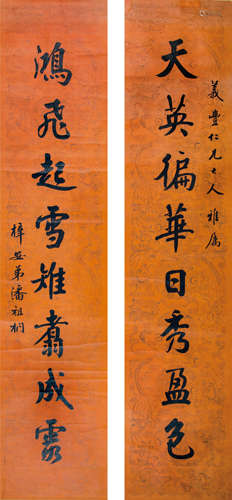 義豐仁兄大人雅屬
天英徧華日秀盈色
鴻飛起雪雉翥成霞
梓 弟潘祖桐